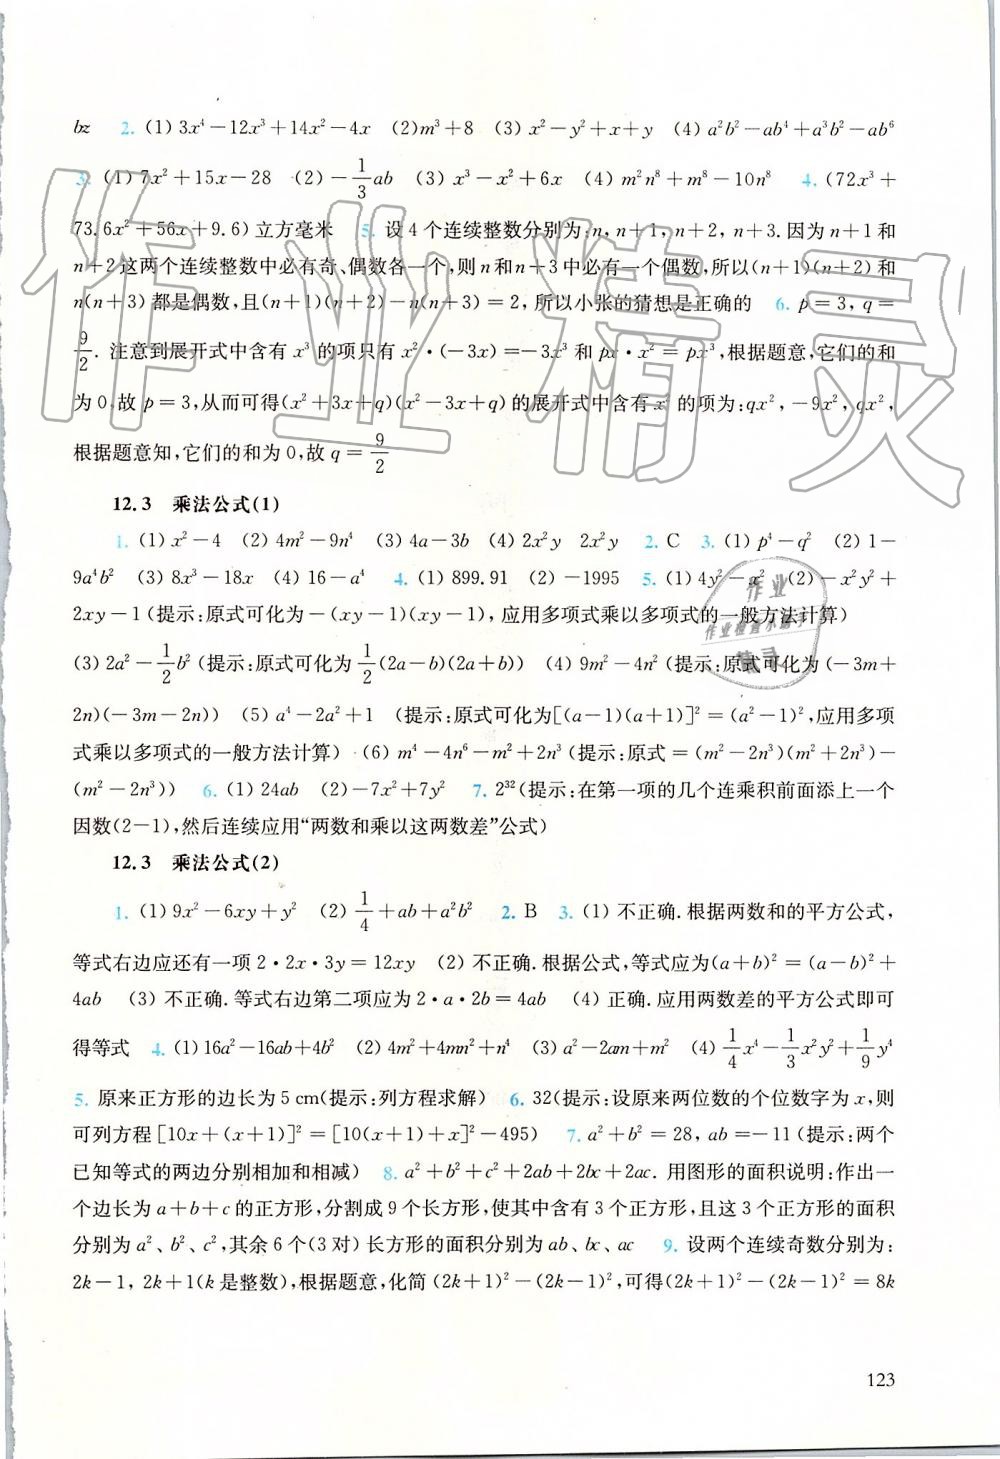 bz　2. (1) 3x⁴－12x³＋14x²－4x　(2)m³＋8　(3) x²－y²＋x＋y　(4) a²b²－ab⁴＋a³b²－ab⁶
3. (1) 7x²＋15x－28　(2)－1/3ab　(3) x³－x²＋6x　(4) m²n⁸＋m⁸－10n⁸　4. (72x³＋
73.6x²＋56x＋9.6)立方毫米　5. 设4个连续整数分别为:n, n＋1, n＋2, n＋3.因为n＋1和
n＋2这两个连续整数中必有奇、偶数各一个,则n和n＋3中必有一个偶数,所以(n＋1)(n＋2)和
n(n＋3)都是偶数,且(n＋1)(n＋2)－n(n＋3)＝2,所以小张的猜想是正确的　6. p＝3, q＝
9/2. 注意到展开式中含有x³的项只有x²·(－3x)＝－3x³和px·x²＝px³,根据题意,它们的和
为0,故p＝3,从而可得(x²＋3x＋q)(x²－3x＋q)的展开式中含有x²的项为:qx²,－9x², qx²,
根据题意知,它们的和为0,故q＝9/2
12.3　乘法公式(1)
1. (1) x²－4　(2) 4m²－9n⁴　(3) 4a－3b　(4) 2x²y　2x²y　2. C　3. (1) p⁴－q²　(2) 1－
9a⁴b²　(3) 8x³－18x　(4) 16－a⁴　4. (1) 899.91　(2)－1995　5. (1) 4y²－x²　(2)－x²y²＋
2xy－1(提示:原式可化为－(xy－1)(xy－1),应用多项式乘以多项式的一般方法计算)
(3) 2a²－1/2b²(提示:原式可化为1/2(2a－b)(2a＋b))　(4) 9m²－4n²(提示:原式可化为(－3m＋
2n)(－3m－2n))　(5) a⁴－2a²＋1　(提示:原式可化为[(a－1)(a＋1)]²＝(a²－1)²,应用多项
式乘以多项式的一般方法计算)　(6) m⁴－4n⁶－m²＋2n³(提示:原式＝(m²－2n³)(m²＋2n³)－
(m²－2n³))　6. (1) 24ab　(2)－7x²＋7y²　7. 2³²(提示:在第一项的几个连乘积前面添上一个
因数(2－1),然后连续应用“两数和乘以这两数差”公式)
12.3　乘法公式(2)
1. (1) 9x²－6xy＋y²　(2) 1/4＋ab＋a²b²　2. B　3. (1) 不正确.根据两数和的平方公式,
等式右边应还有一项2·2x·3y＝12xy　(2) 不正确.根据公式,等式应为(a＋b)²＝(a－b)²＋
4ab　(3) 不正确.等式右边第二项应为2·a·2b＝4ab　(4) 正确.应用两数差的平方公式即可
得等式　4. (1) 16a²－16ab＋4b²　(2) 4m²＋4mn²＋n⁴　(3) a²－2am＋m²　(4) 1/4x⁴－1/3x²y²＋1/9y⁴
5. 原来正方形的边长为5 cm(提示:列方程求解)　6. 32(提示:设原来两位数的个位数字为x,则
可列方程[10x＋(x＋1)]²＝[10(x＋1)＋x]²－495)　7. a²＋b²＝28, ab＝－11(提示:两个
已知等式的两边分别相加和相减)　8. a²＋b²＋c²＋2ab＋2bc＋2ac. 用图形的面积说明:作出一
个边长为a＋b＋c的正方形,分割成9个长方形,使其中含有3个正方形,且这3个正方形的面积
分别为a²、b²、c²,其余6个(3对)长方形的面积分别为ab、bc、ac　9. 设两个连续奇数分别为:
2k－1, 2k＋1(k是整数),根据题意,化简(2k＋1)²－(2k－1)²,可得(2k＋1)²－(2k－1)²＝8k
123
作业精灵
作业